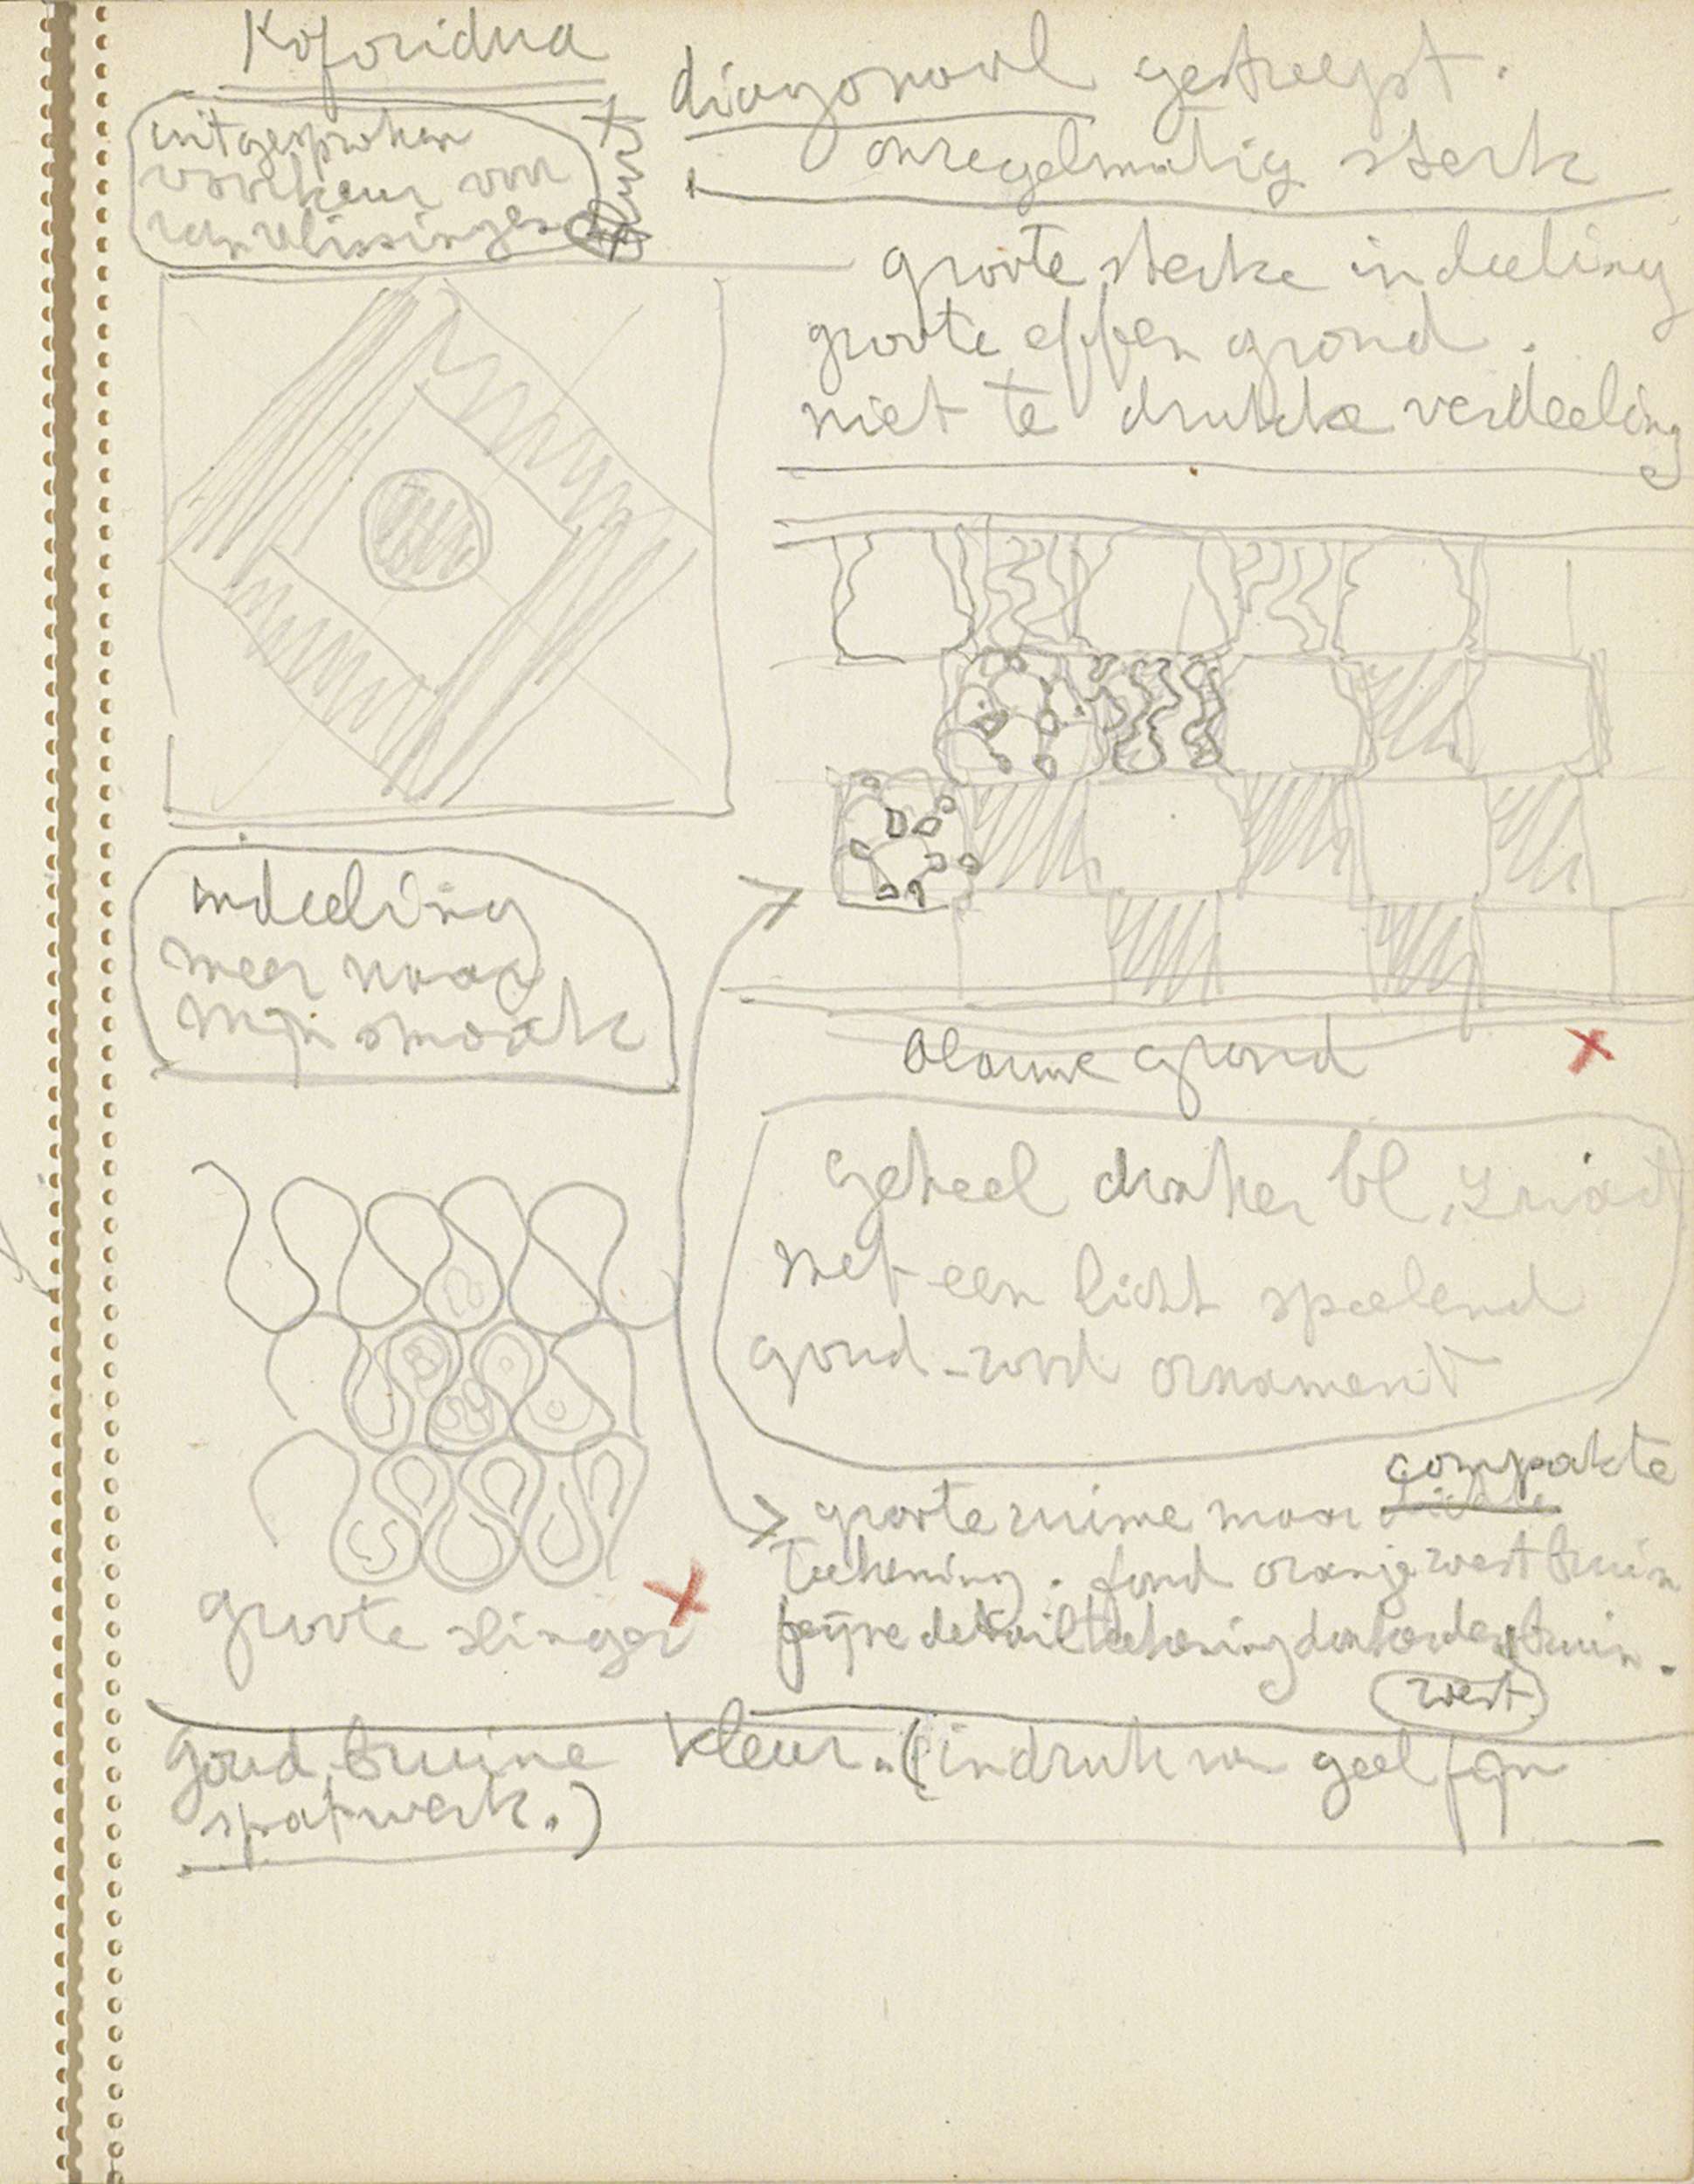 Koforidua
uitgesproken
voorkeur voor
van Vlissingen
diagonaal gestreept.
onregelmatig sterk
groote sterke indeeling
groote effen grond.
niet te drukke verdeeling
indeeling
meer naar
mijn smaak
blauwe grond
geheel donker bl. zwart
met een licht speelend
goud-rood ornament
compakte
groote ruime maar
teekening. fond oranje roestbruin
fijne detailteekening donkerder bruin.
roest
groote slinger
goud bruine kleur. (indruk van geel fijn
spatwerk.)